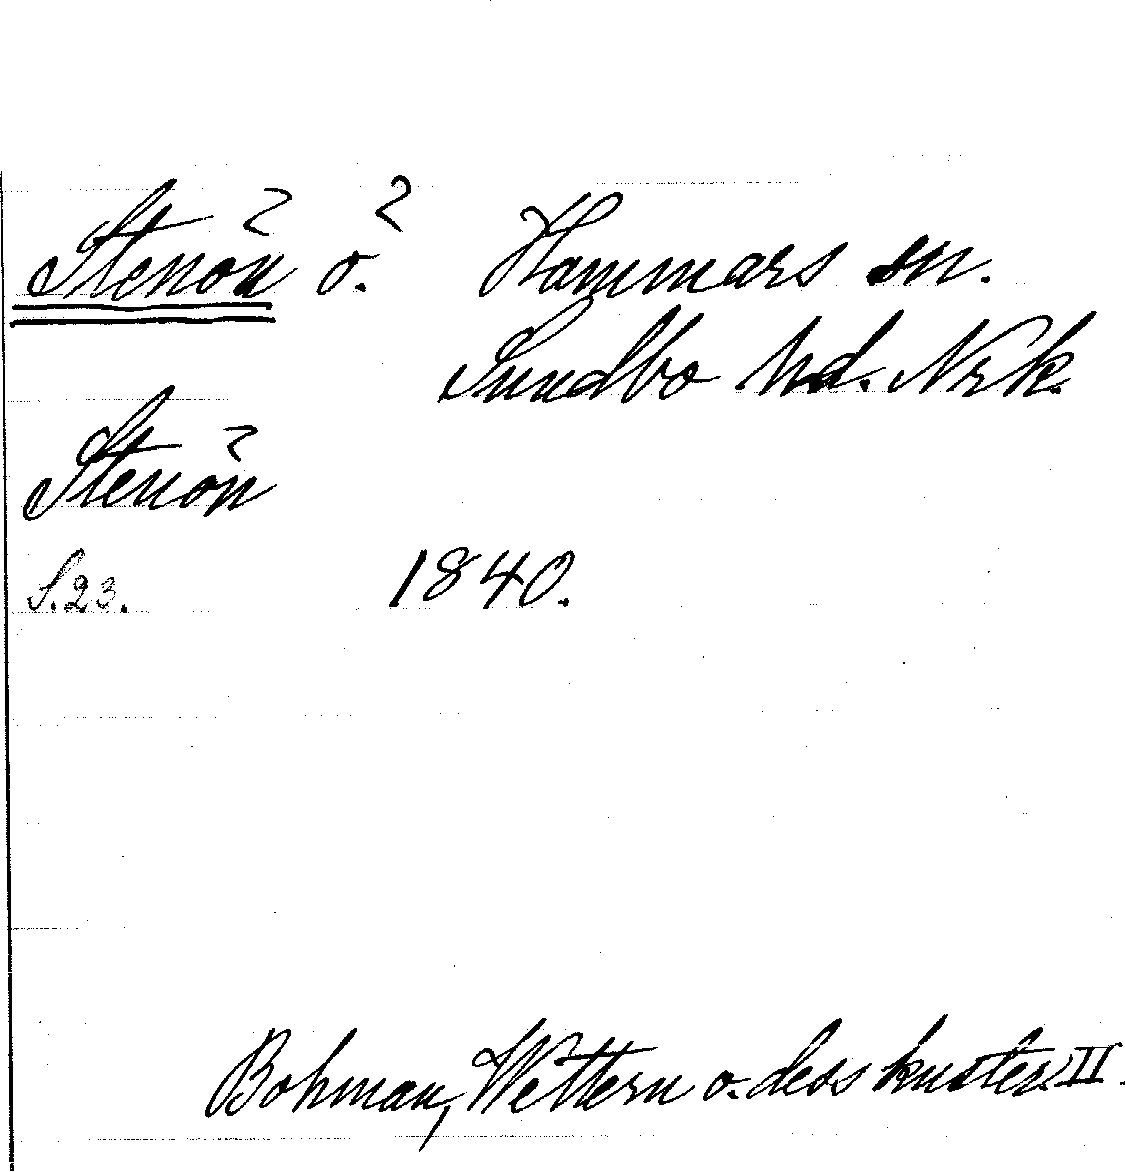 Stenön ö. Hammars sn.
Sundbo hd. Nrk.
Stenön
S. 23. 1840.
Bohman, Wettern o. dess kuster II.